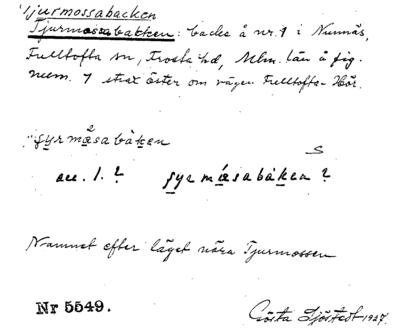 Tjurmossabacken
Tjurmossabacken: backe å nr. 1 i Nunnäs,
Fulltofta sn, Frosta hd, Mlm. län å fig.
num. 7 strax öster om vägen Fulltofta-Hör.
ʃyrmåsabàken
acc. 1. ? ʃyrmåsabàken ?
S
Namnet efter läget nära Tjurmossen
Nr 5549.
Gösta Sjöstedt 1927.